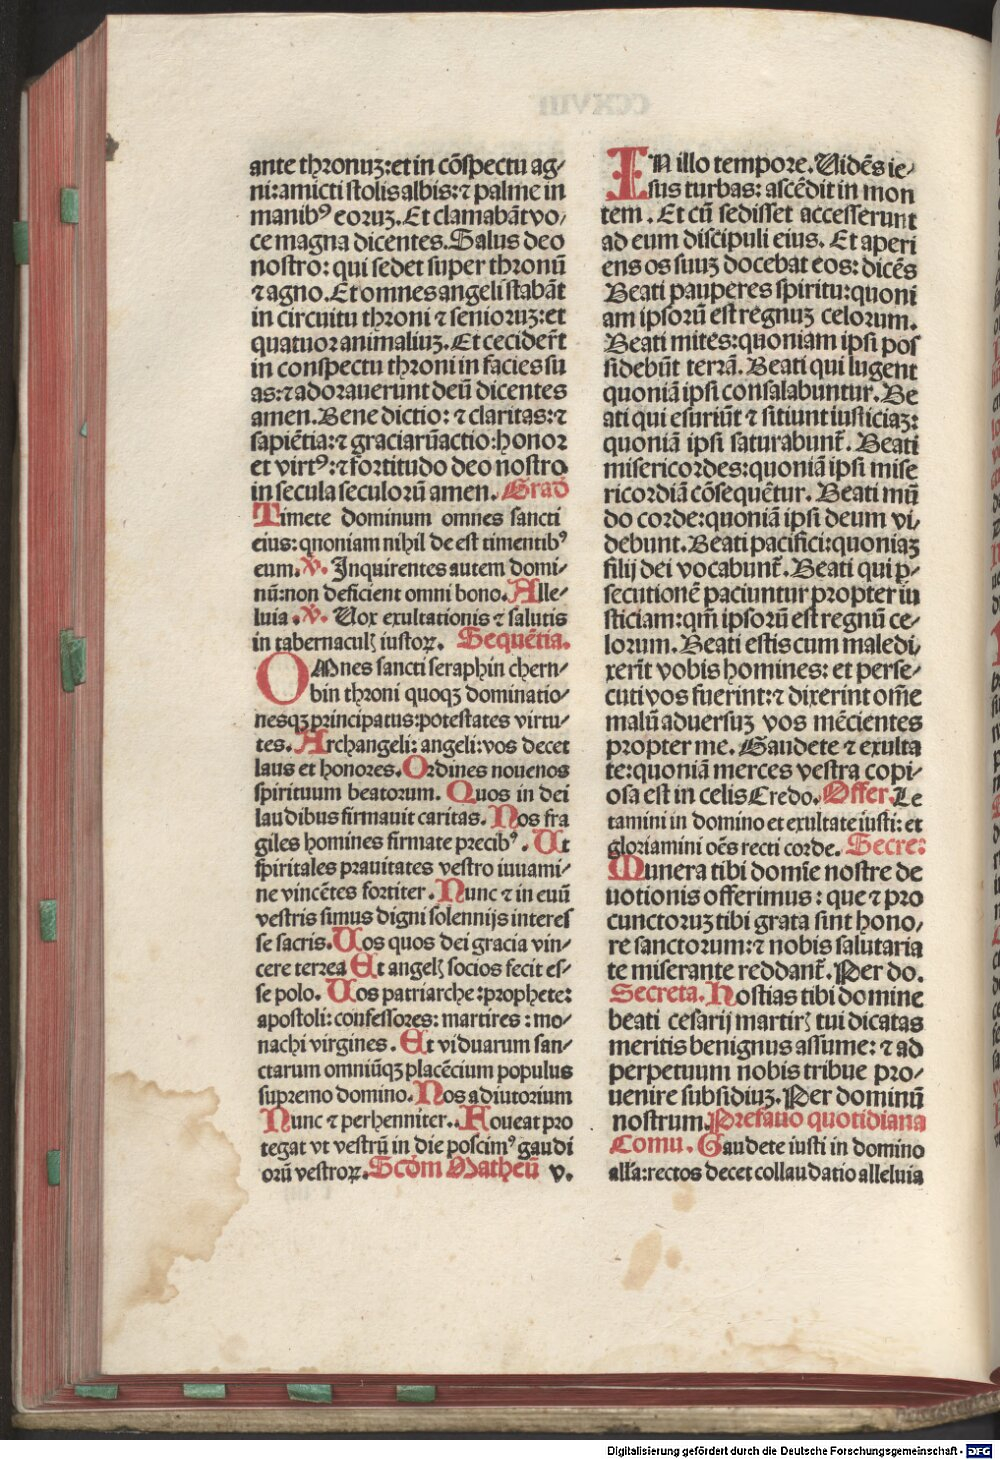 ante thronuʒ: et in cōspectu ag⸗
ni: amicti stolis albis: ⁊ palme in
manibꝰ eoruʒ. Et clamabāt vo⸗
ce magna dicentes. Salus deo
nostro: qui sedet super thronū
⁊ agno. Et omnes angeli stabāt
in circuitu throni ⁊ senioruʒ: et
quatuor animaliuʒ. Et ceciderūt
in conspectu throni in facies su
as: ⁊ adorauerunt deū dicentes
amen. Bene dictio: ⁊ claritas: ⁊
sapiētia: ⁊ graciarū actio: honor
et virtꝰ: ⁊ fortitudo deo nostro
in secula seculorū amen. Grad̄
Timete dominum omnes sancti
eius: quoniam nihil de est timentibꝰ
eum. v̇. Inquirentes autem domi⸗
nū: non deficient omni bono. Alle⸗
luia. v̇. Uox exultationis ⁊ salutis
in tabernacul̓ iustoꝝ. Sequētia.
OMnes sancti seraphin cheru⸗
bin throni quoqʒ dominatio⸗
nesqʒ principatus: potestates virtu⸗
tes. Archangeli: angeli: vos decet
laus et honores. Ordines nouenos
spirituum beatorum. Quos in dei
laudibus firmauit caritas. Nos fra
giles homines firmate precibꝰ. Ut
spiritales prauitates vestro iuuami⸗
ne vincētes fortiter. Nunc ⁊ in euū
vestris simus digni solennijs interes
se sacris. Uos quos dei gracia vin⸗
cere terrea Et angel̓ socios fecit es⸗
se polo. Uos patriarche: prophete:
apostoli: confessores: martires: mo⸗
nachi virgines. Et viduarum san⸗
ctarum omniūqʒ placēcium populus
supremo domino. Nos adiutorium
Nunc ⁊ perhenniter. Foueat pro
tegat vt vestrū in die poscimꝰ gaudi
orū vestroꝝ. Scd̓m Matheū v.
IN illo tempore. Uidēs ie⸗
sus turbas: ascēdit in mon
tem. Et cū sedisset accesserunt
ad eum discipuli eius. Et aperi
ens os suuʒ docebat eos: dicēs
Beati pauperes spiritu: quoni
am ipsorū est regnuʒ celorum.
Beati mites: quoniam ipsi pos
sidebūt terrā. Beati qui lugent
quoniā ipsi consalabuntur. Be
ati qui esuriūt ⁊ sitiunt iusticiaʒ:
quoniā ipsi saturabunt̄. Beati
misericordes: quoniā ipsi mise
ricordiā cōsequētur. Beati mū
do corde: quoniā ipsi deum vi⸗
debunt. Beati pacifici: quoniaʒ
filij dei vocabunt̄. Beati qui ꝑ⸗
secutionē paciuntur propter iu
sticiam: qm̄ ipsorū est regnū ce⸗
lorum. Beati estis cum maledi⸗
xerīt vobis homines: et perse⸗
cuti vos fuerint: ⁊ dixerint om̄e
malū aduersuʒ vos mēcientes
propter me. Gaudete ⁊ exulta
te: quoniā merces vestra copi⸗
osa est in celis Credo. Offer. Le
tamini in domino et exultate iusti: et
gloriamini oēs recti corde. Secre:
Munera tibi domīe nostre de
uotionis offerimus: que ⁊ pro
cunctoruʒ tibi grata sint hono⸗
re sanctorum: ⁊ nobis salutaria
te miserante reddant̄. Per do.
Secreta. Hostias tibi domine
beati cesarij martir̓ tui dicatas
meritis benignus assume: ⁊ ad
perpetuum nobis tribue pro⸗
uenire subsidiuʒ. Per dominū
nostrum. Prefatio quotidiana
Comu. Gaudete iusti in domino
all'a: rectos decet collaudatio alleluia
Digitalisierung gefördert durch die Deutsche Forschungsgemeinschaft - DFG